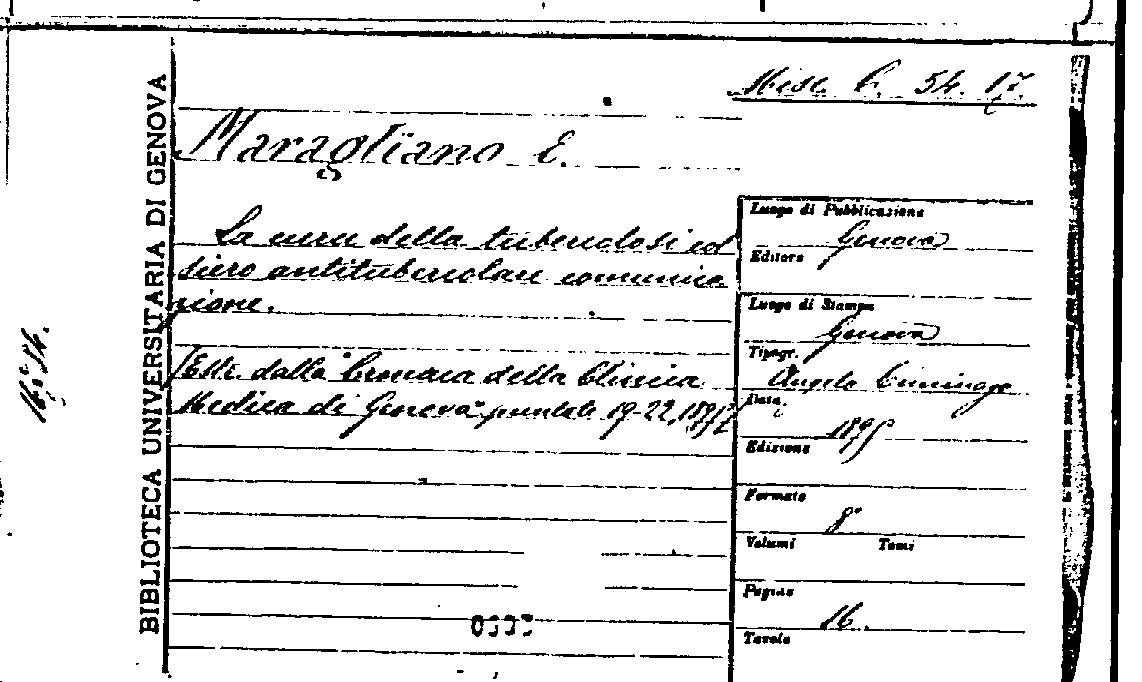 Misc. C. 54. 17.
BIBLIOTECA UNIVERSITARIA DI GENOVA
Maragliano E.
La cura della tubercolosi col
siero antitubercolare comunica
zione.
[Estr. dalla "Cronaca della Clinica
Medica di Genova" puntate 19-22, 1895]
Luogo di Pubblicazione
Genova
Editore
Luogo di Stampa
Genova
Tipogr.
Angelo Ciminago
Data
1895
Edizione
Formato
8°
Volumi Tomi
Pagine
16.
Tavole